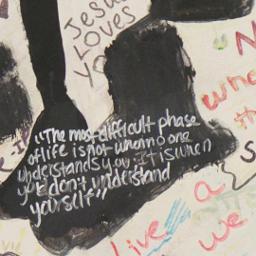 Jesus
LOVES
YO
"The most difficult phase
of life is not when no one
understands you. It is when
you don't understand
yourself"
N
who
th
S
Live a
we